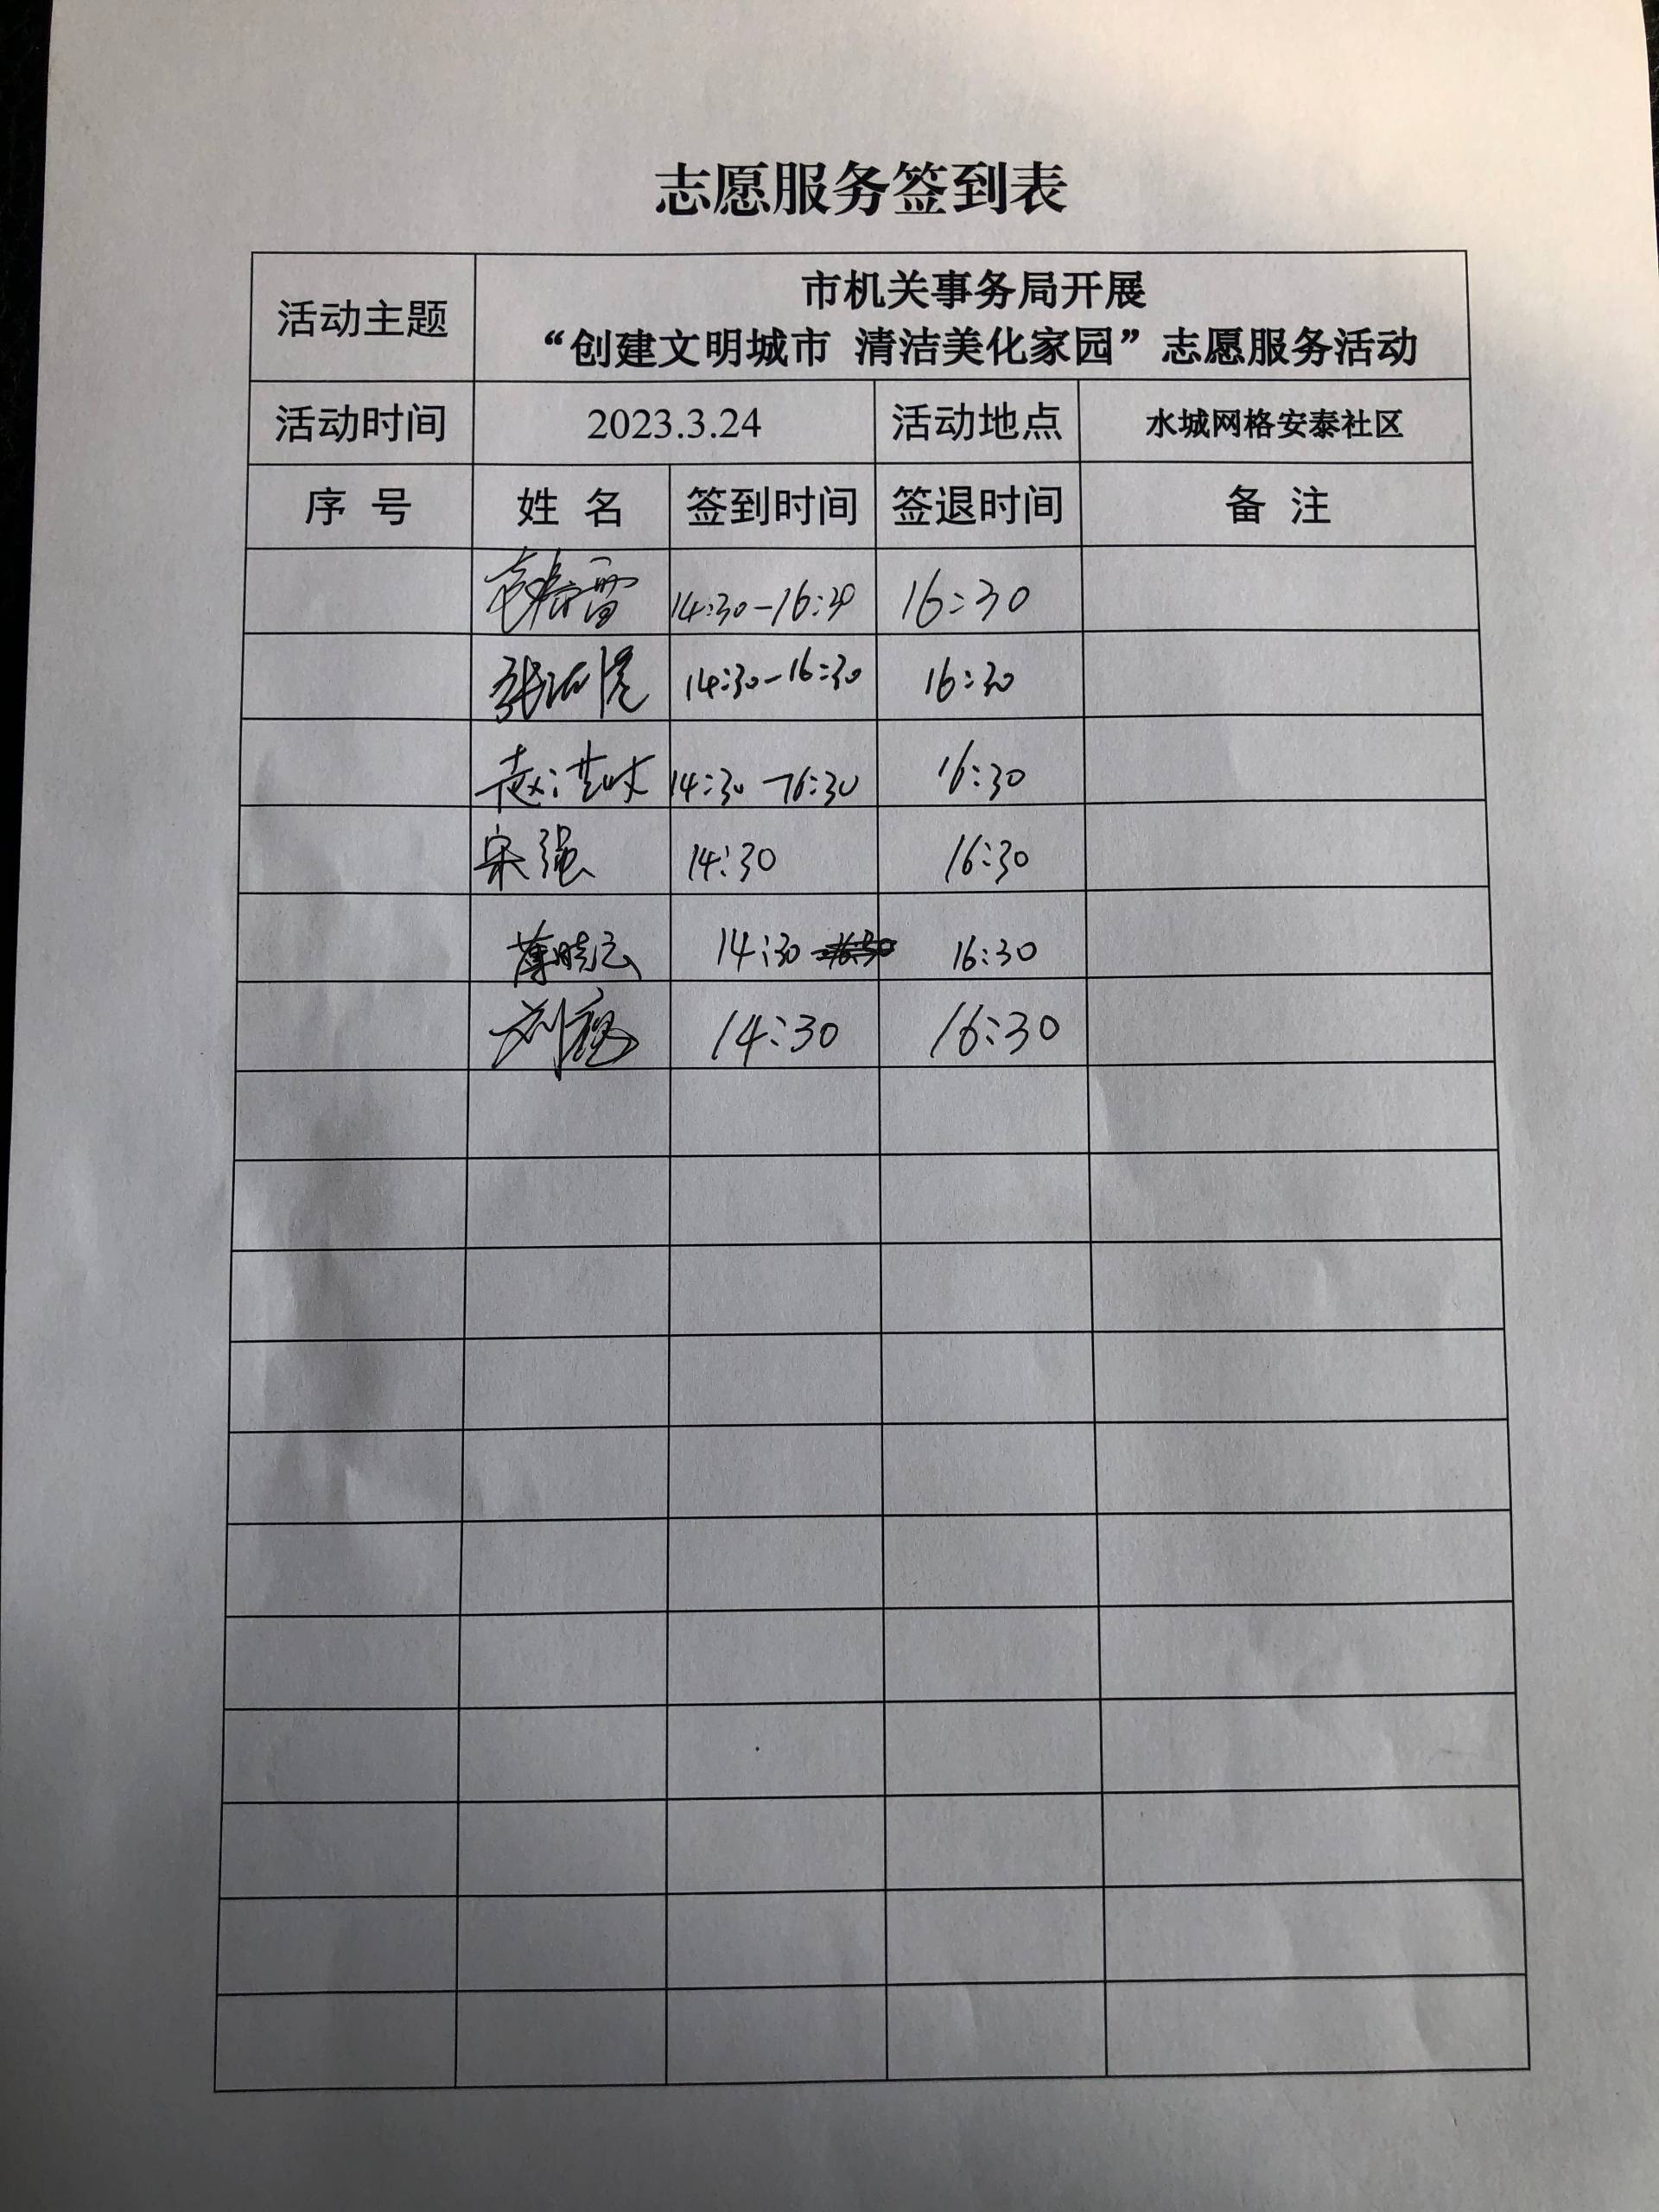 志愿服务签到表
活动主题
市机关事务局开展
“创建文明城市 清洁美化家园”志愿服务活动
活动时间 2023.3.24 活动地点 水城网格安泰社区
序 号 姓 名 签到时间 签退时间 备 注
14:30-16:30 16:30
14:30-16:30 16:30
14:30-16:30 16:30
宋强 14:30 16:30
薄晓云 14:30 16:30
14:30 16:30